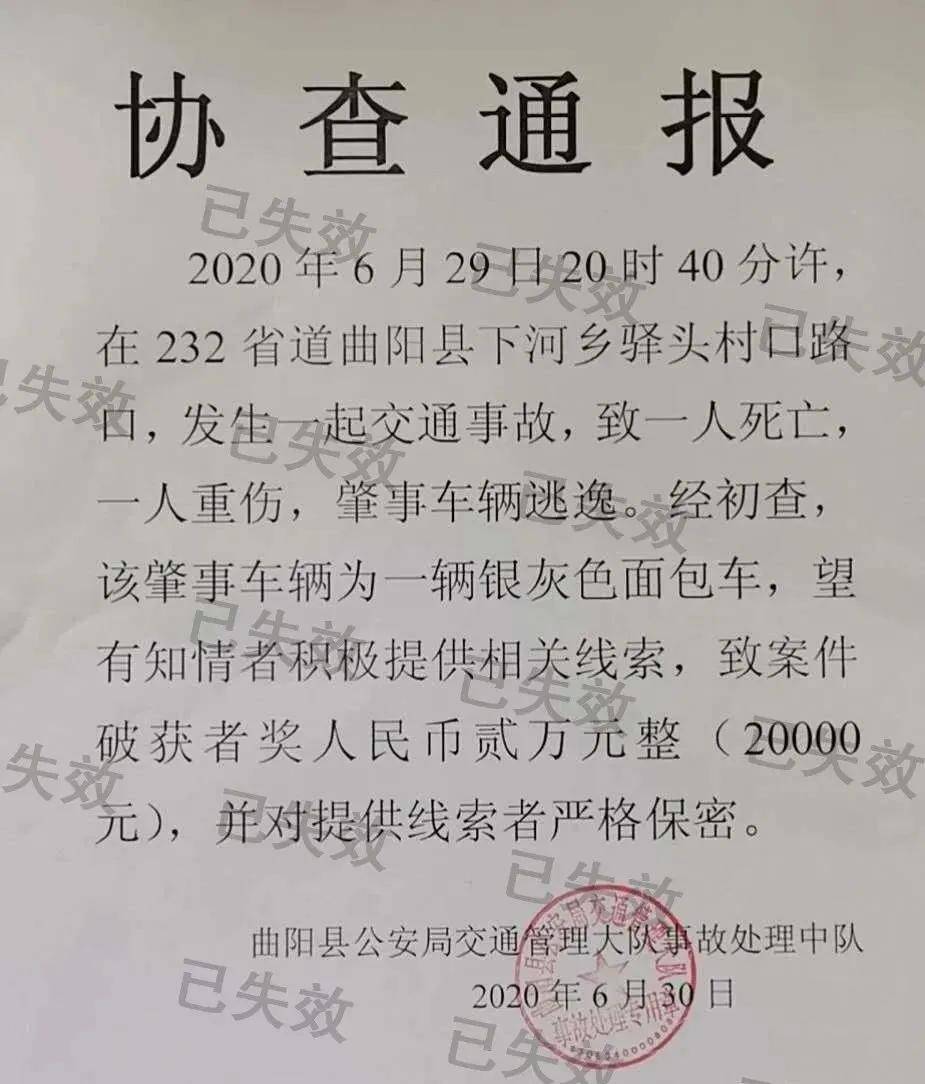 协查通报
2020年6月29日20时40分许，
在232省道曲阳县下河乡驿头村口路
口，发生一起交通事故，致一人死亡，
一人重伤，肇事车辆逃逸。经初查，
该肇事车辆为一辆银灰色面包车，望
有知情者积极提供相关线索，致案件
破获者奖人民币贰万元整（20000
元），并对提供线索者严格保密。
曲阳县公安局交通管理大队事故处理中队
2020年6月30日
曲阳县公安局交通管理大队
事故处理专用章
已失效
已失效
已失效
已失效
已失效
已失效
已失效
已失效
已失效
已失效
已失效
已失效
已失效
已失效